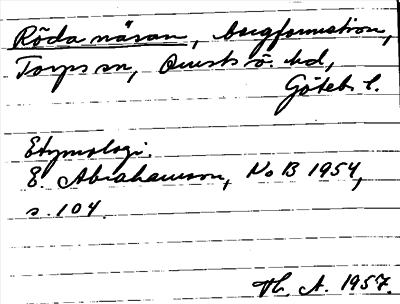 Röda näsan, bergformation,
Torps sn, Orusts ö. hd,
Göteb. l.
Etymologi.
E. Abrahamson, No B 1954,
s. 104.
A. 1957.